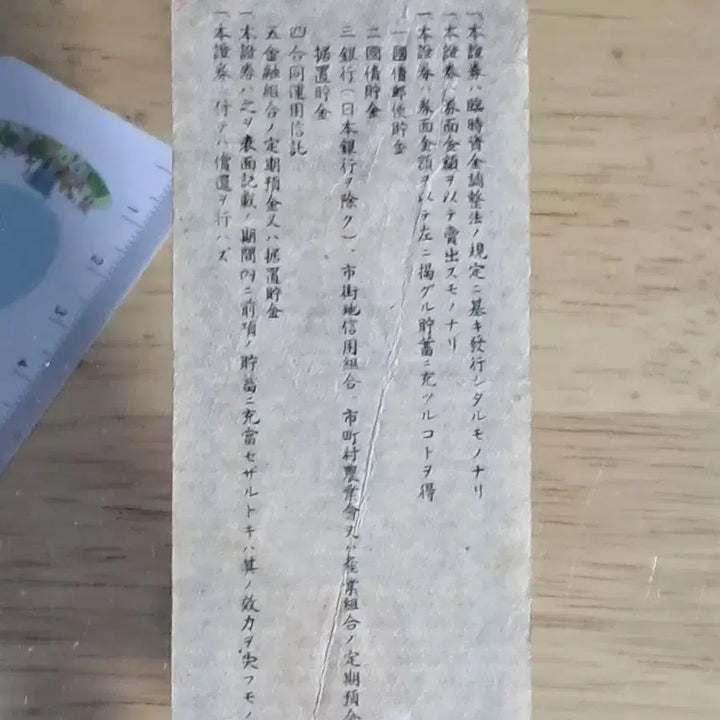 一、本證券ハ臨時資金調整法ノ規定ニ基キ發行シタルモノナリ
一、本證券ハ券面金額ヲ以テ賣出スモノナリ
一、本證券ハ券面金額ヲ以テ左ニ揭グル貯蓄ニ充ツルコトヲ得
一 國債郵便貯金
二 國債貯金
三 銀行(日本銀行ヲ除ク)、市街地信用組合、市町村農業會又ハ產業組合ノ定期預金
据置貯金
四 合同運用信託
五 金融組合ノ定期預金又ハ据置貯金
一、本證券ハ之ヲ表面記載ノ期間內ニ前項ノ貯蓄ニ充當セザルトキハ其ノ效力ヲ失フモノ
一、本證券ニ付テハ償還ヲ行ハズ
1
2
3
4